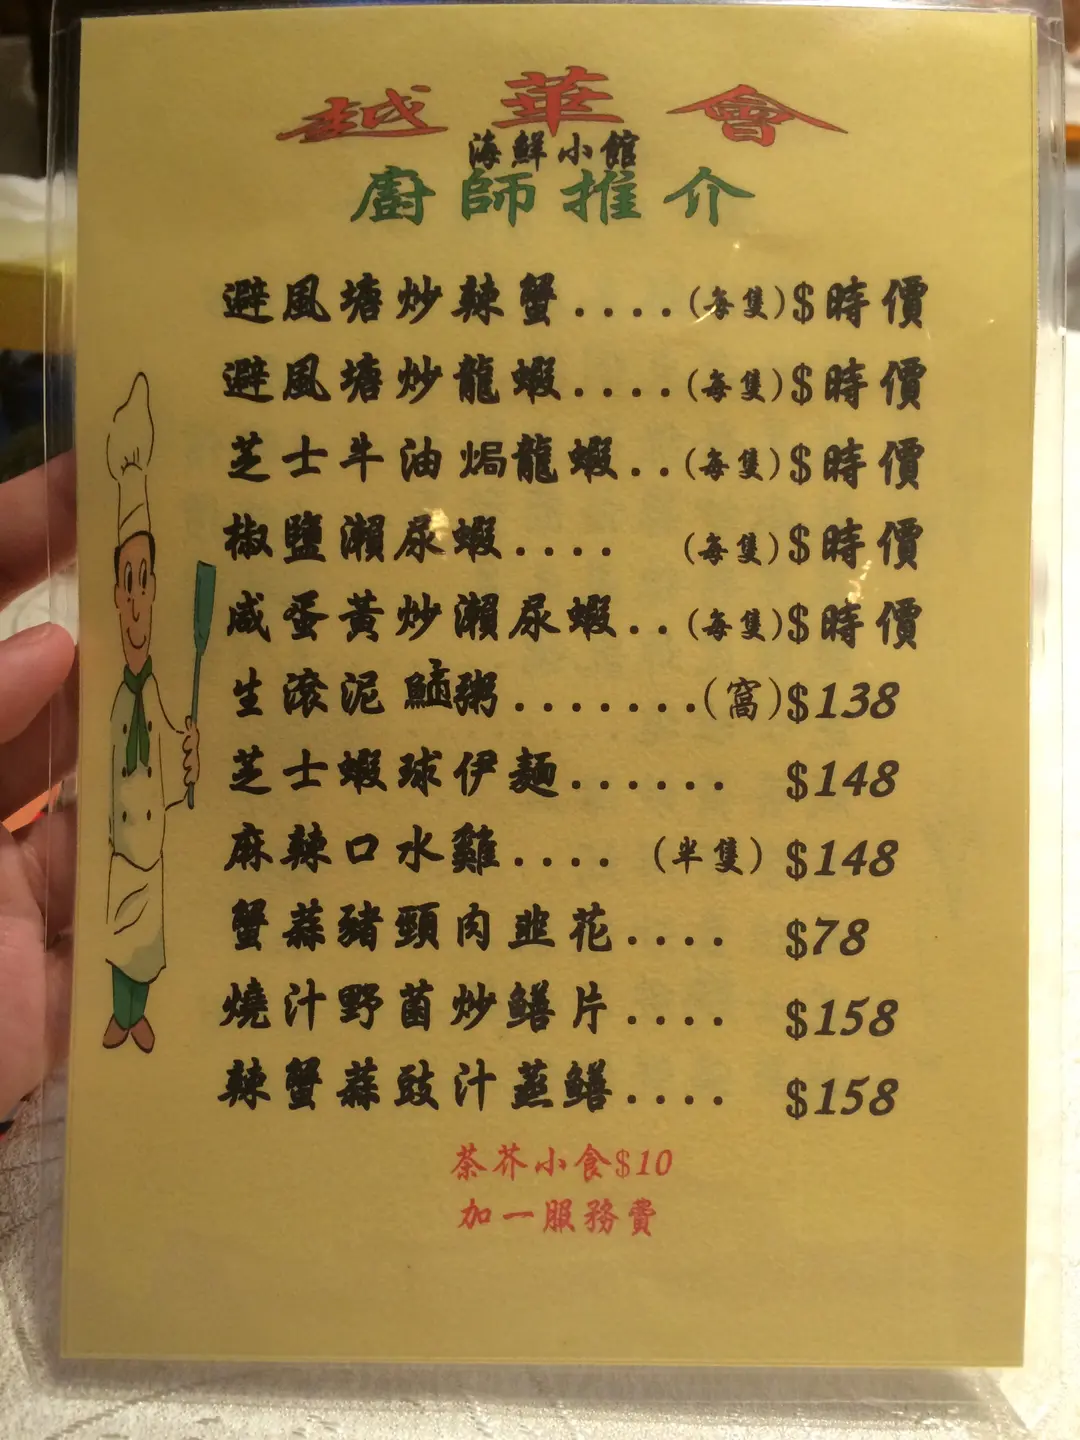 越華會
海鮮小館
廚師推介
避風塘炒辣蟹....(每隻)$時價
避風塘炒龍蝦....(每隻)$時價
芝士牛油焗龍蝦..(每隻)$時價
椒鹽瀨尿蝦.... (每隻)$時價
咸蛋黃炒瀨尿蝦..(每隻)$時價
生滾泥鯭粥.......(窩)$138
芝士蝦球伊麵...... $148
麻辣口水雞.... (半隻) $148
蟹蒜豬頸肉韭花.... $78
燒汁野菌炒鱔片.... $158
辣蟹蒜豉汁蒸鱔.... $158
茶芥小食$10
加一服務費